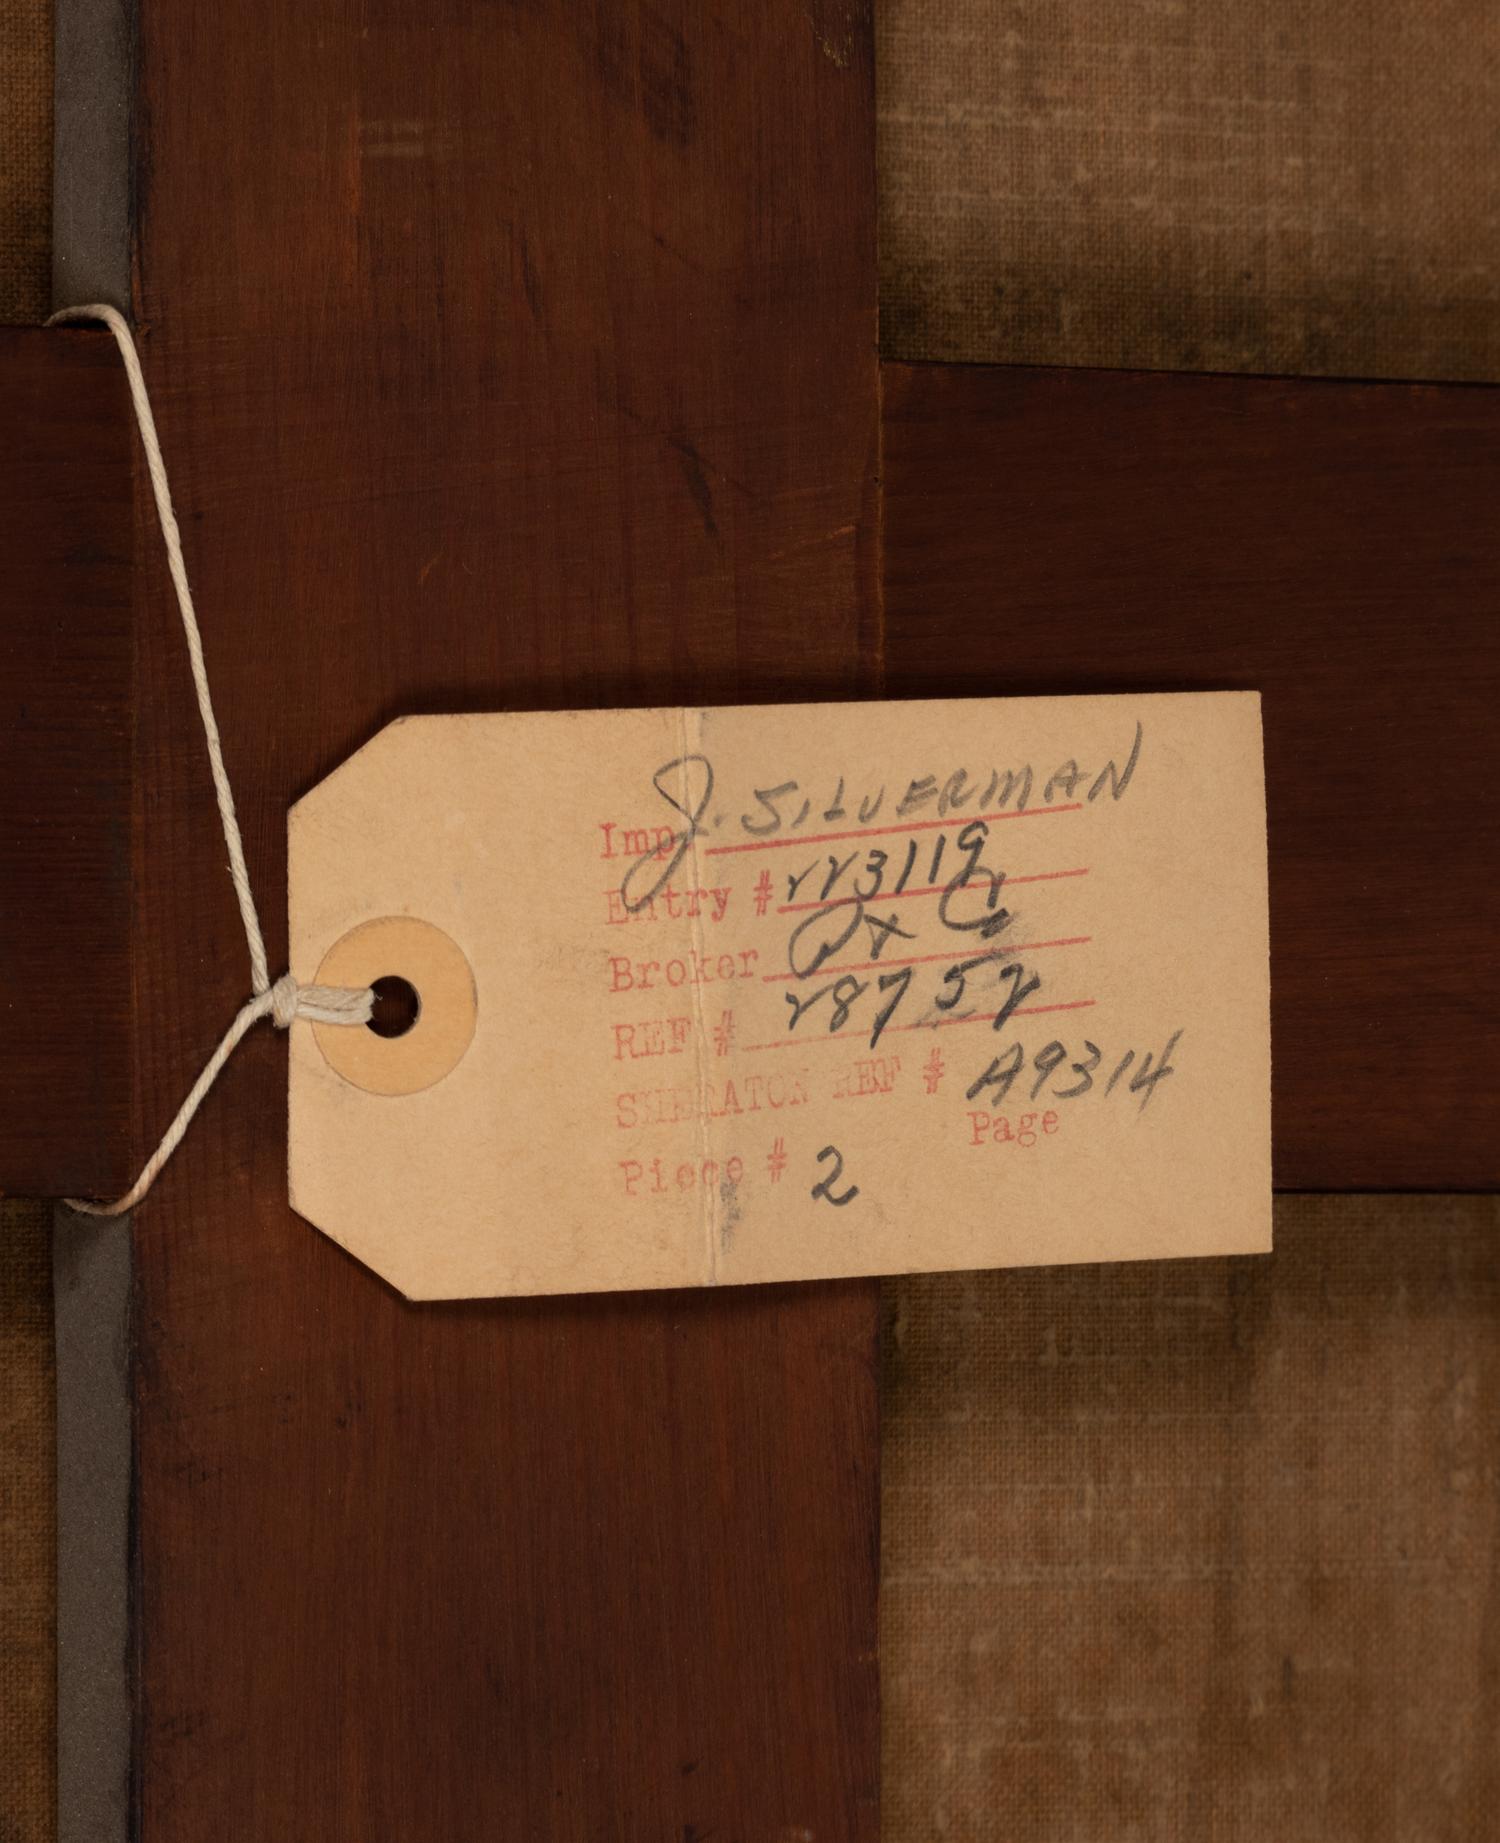 Imp J. SILVERMAN
Entry # 223119
Broker
REF # 28752
SHERATON REF # A9314
Page
Piece # 2